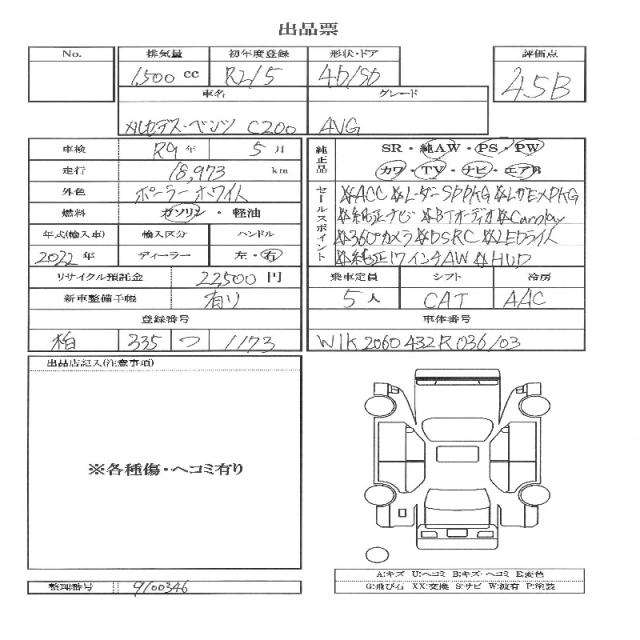 出品票
No. 排気量 初年度登録 形状・ドア 評価点
1,500 cc 4D/5D 4.5B
車名 グレード
メルセデス・ベンツ C200 AVG
車検 R9 年 5 月
走行 18,973 km
外色 ポーラーホワイト
燃料 ガソリン・軽油
年式(輸入車) 輸入区分 ハンドル
2022 年 ディーラー 左・右
リサイクル預託金 22,500 円
新車整備手帳 有り
登録番号
柏 335 つ 1173
純正品 SR・純AW・PS・PW
カワ・TV・ナビ・エアB
セールスポイント ☆ACC ☆レーダーSPPKG ☆レザEXPKG
☆純正ナビ ☆BTオーディオ ☆Carplay
☆360°カメラ ☆DSRC ☆LEDライト
☆純正17インチAW ☆HUD
乗車定員 シフト 冷房
5 人 CAT AAC
車体番号
W1K2060432R036103
出品店記入(注意事項)
※各種傷・ヘコミ有り
整理番号 9100346
A:キズ U:ヘコミ B:キズ・ヘコミ E:変色
G:飛び石 XX:交換 S:サビ W:波有 P:塗装